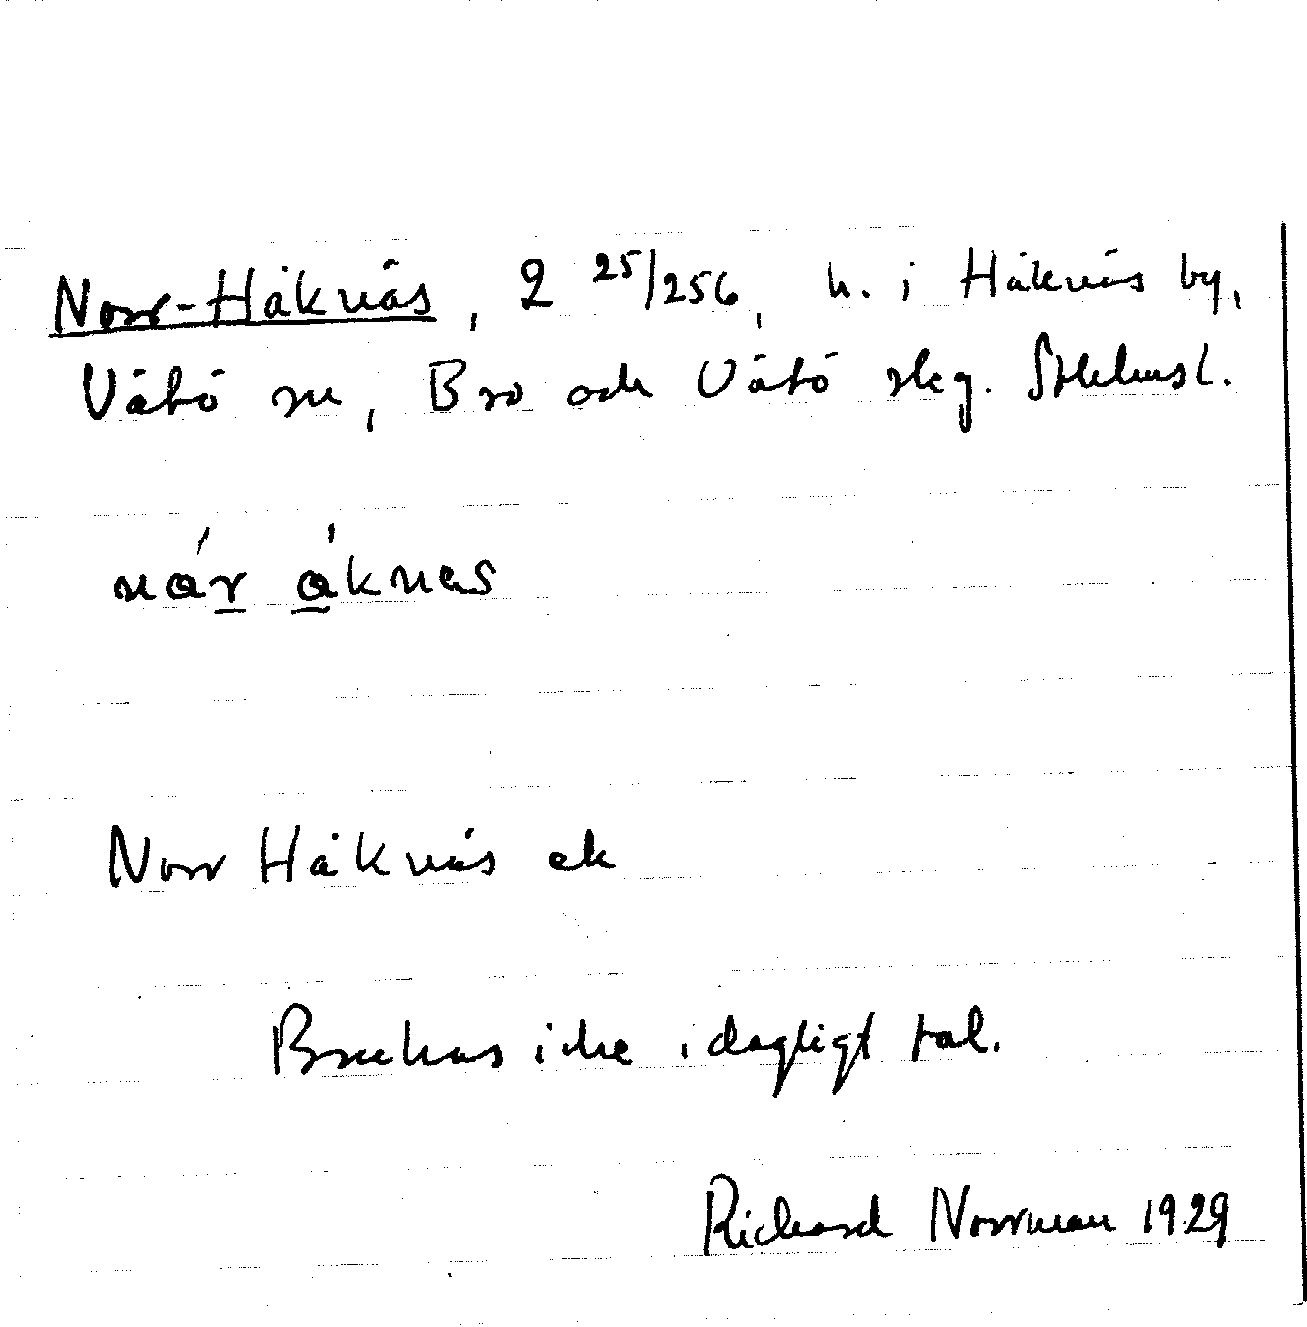 Norr-Håknäs, 2 25/256, h. i Håknäs by,
Vätö sn, Bro och Vätö skg. Sthlmsl.
når åknes
Norr Håknäs ek
Brukas icke i dagligt tal.
Richard Norrman 1929